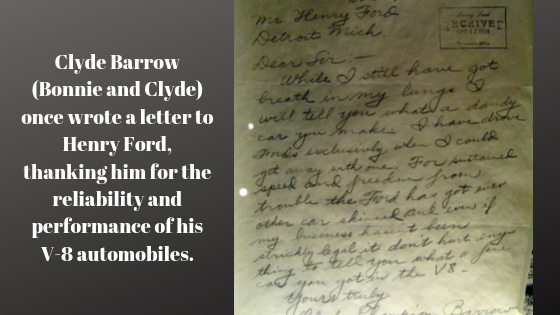 Clyde Barrow
(Bonnie and Clyde)
once wrote a letter to
Henry Ford,
thanking him for the
reliability and
performance of his
V-8 automobiles.
Mr. Henry Ford
Detroit Mich.
Dear Sir:—
While I still have got
breath in my lungs I
will tell you what a dandy
car you make. I have drove
Fords exclusively when I could
get away with one. For sustained
speed and freedom from
trouble the Ford has got ever
other car skinned and even if
my business hasen't been
strickly legal it don't hurt eny
thing to tell you what a fine
car you got in the V8 –
Yours truly
Champion Barrow